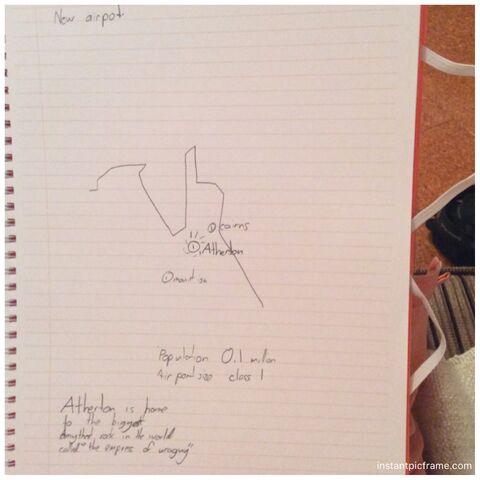 New airpot
① cairns
① Atherton
① mount isa
Population 0.1 millon
Air port size class 1
Atherton is home
to the biggest
rock in the world
called "the empires of
instantpicframe.com